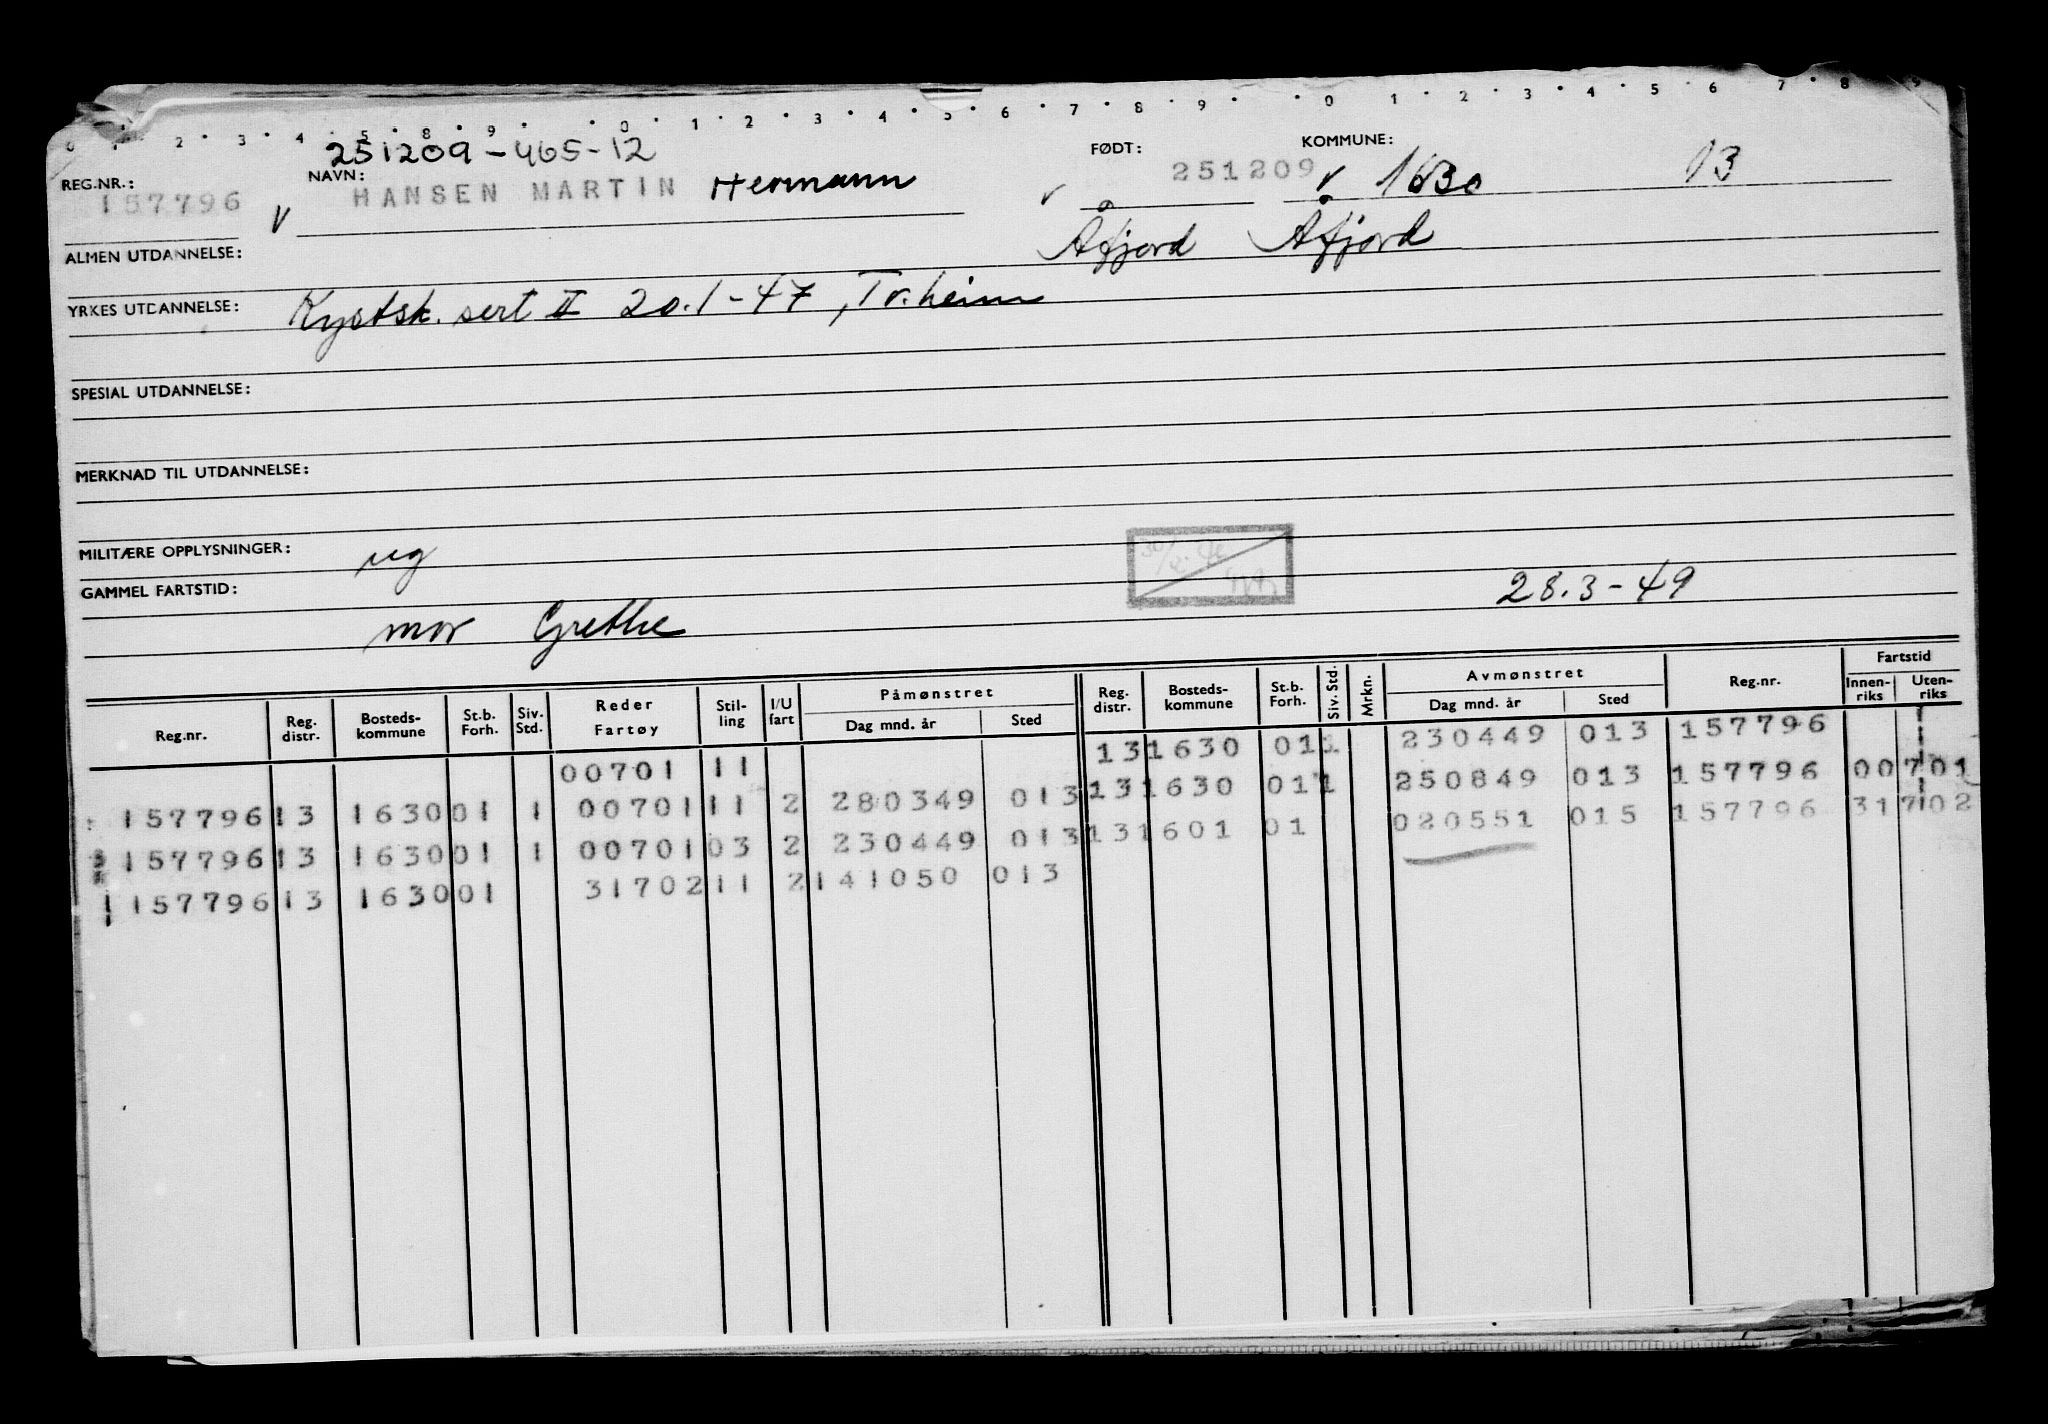 0 1 2 3 4 5 8 9 0 1 2 3 4 5 6 7 8 9 0 1 2 3 4 5 6 7 8 9
251209-465-12
REG.NR.: NAVN: FØDT: KOMMUNE:
157796 V HANSEN MARTIN Hermann v 251209 v 1630 13
Åfjord Åfjord
ALMEN UTDANNELSE:
YRKES UTDANNELSE: Kystsk. sert II 20.1-47, Tr.heim
SPESIAL UTDANNELSE:
MERKNAD TIL UTDANNELSE:
MILITÆRE OPPLYSNINGER: ug
GAMMEL FARTSTID: 28.3-49
mor Grethe
Reg.nr. Reg. distr. Bosteds-kommune St.b. Forh. Siv. Std. Reder Fartøy Stil-ling I/U fart Påmønstret Dag mnd. år Sted Reg. distr. Bosteds-kommune St.b. Forh. Siv. Std. Mrkn. Avmønstret Dag mnd. år Sted Reg.nr. Fartstid Innen-riks Uten-riks
00701 11 13 1630 01 1 230449 013 157796
157796 13 1630 01 1 00701 11 2 280349 013 13 1630 01 1 250849 013 157796 00701
157796 13 1630 01 1 00701 03 2 230449 013 13 1601 01 020551 015 157796 31702
157796 13 1630 01 31702 11 2 141050 013